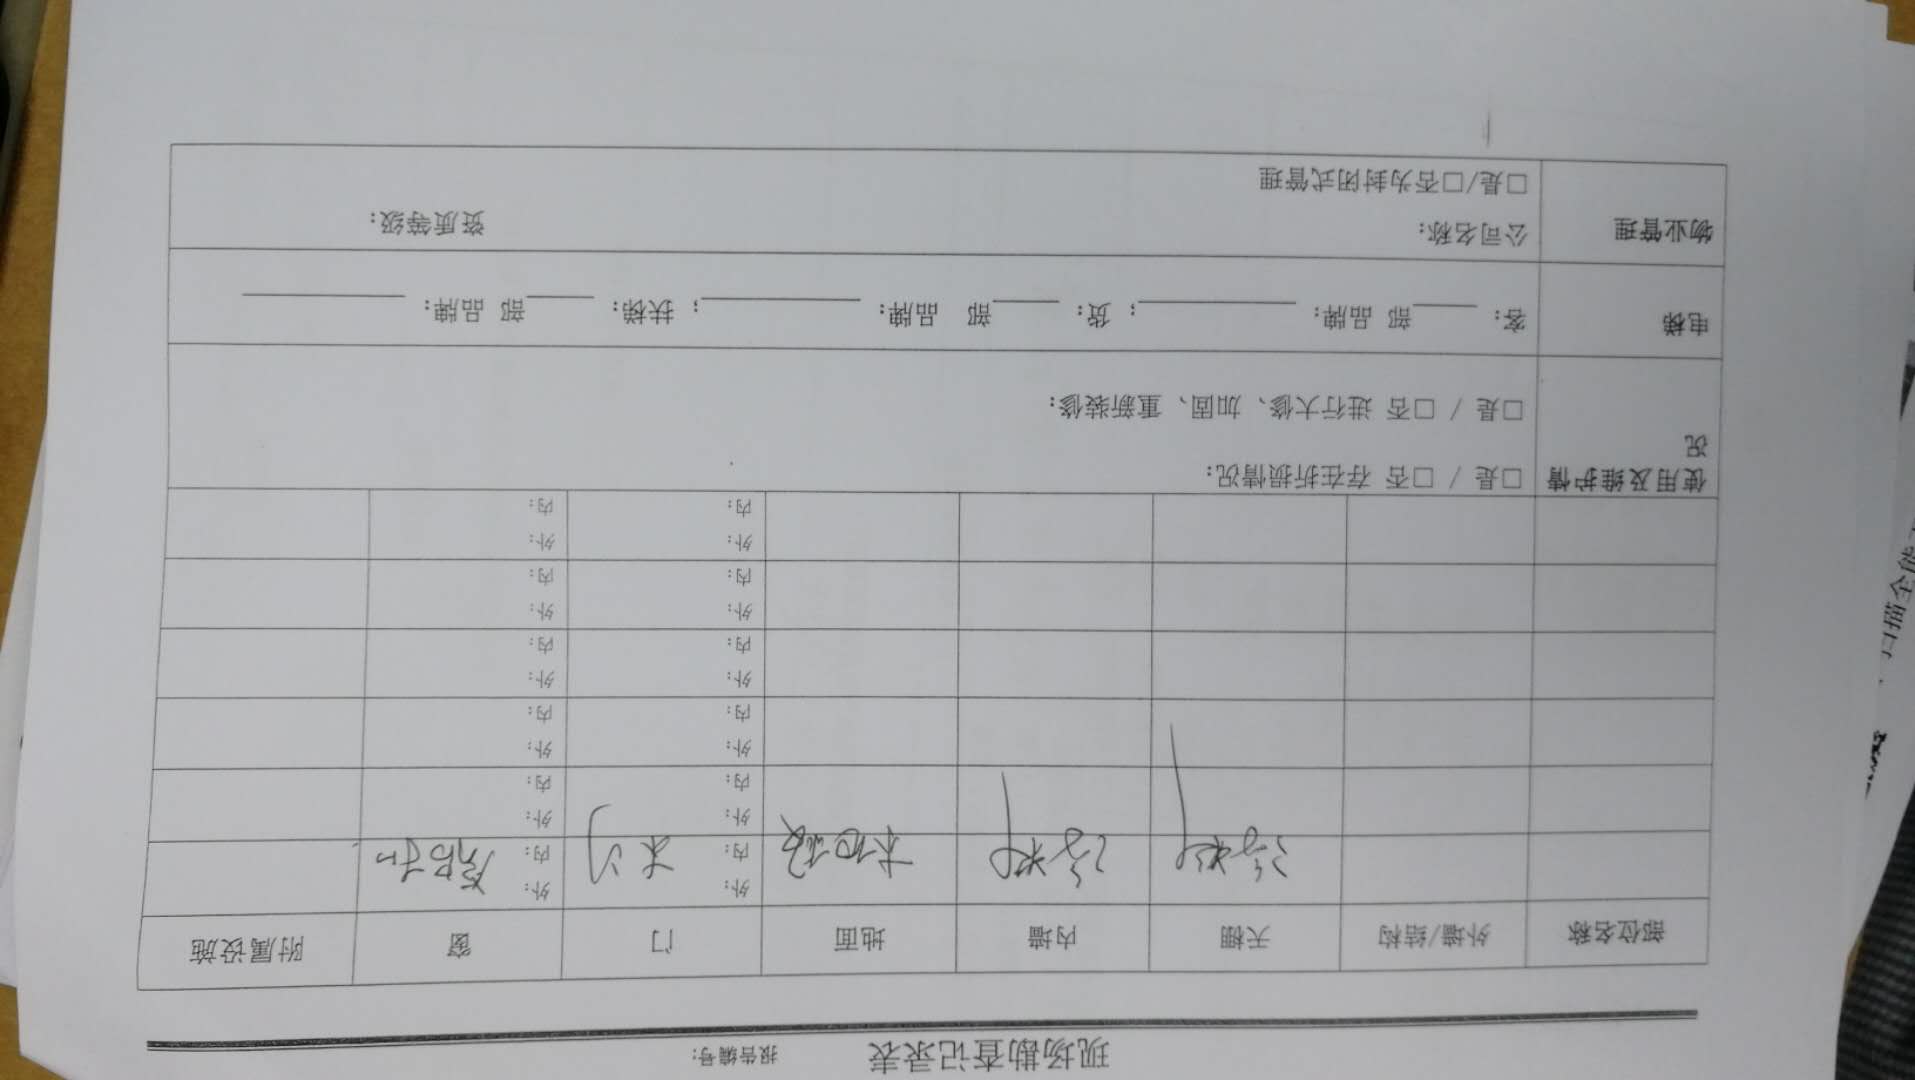 现场勘查记录表 报告编号:
部位名称 外墙/结构 天棚 内墙 地面 门 窗 附属设施
涂料 涂料 木地板 外: 木门 外: 铝合
内: 内:
外: 外:
内: 内:
外: 外:
内: 内:
外: 外:
内: 内:
外: 外:
内: 内:
外: 外:
内: 内:
使用及维护情况 □是 / □否 存在折损情况:
□是 / □否 进行大修、加固、重新装修:
电梯 客: ____部 品牌: ________; 货: ____部 品牌: ________; 扶梯: ____部 品牌: ________
物业管理 公司名称: 资质等级:
□是/□否为封闭式管理